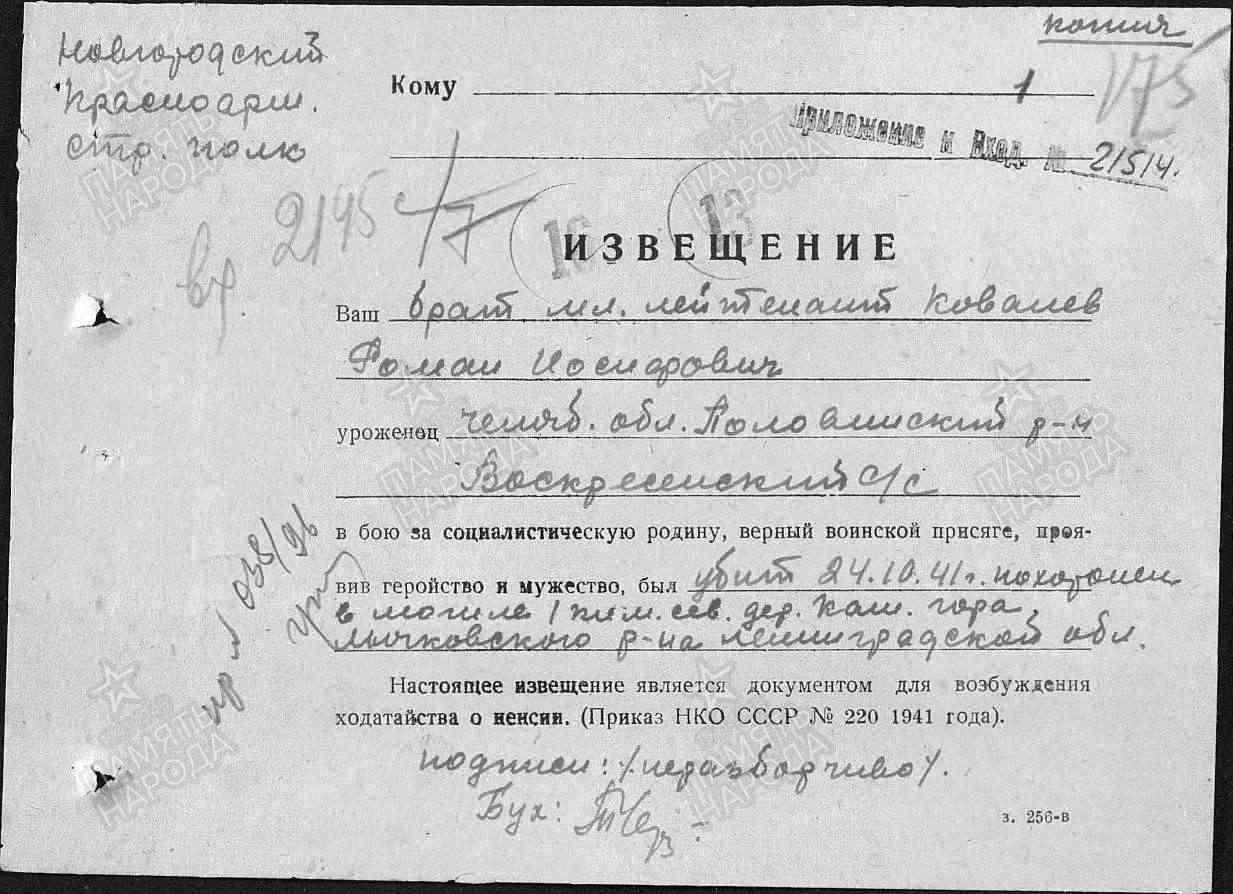 копия
Новгородский
Красноарм.
стр. полк
Кому
1
175
Приложение к Вход. № 21514.
вх. 2145 с/7
16
13
ИЗВЕЩЕНИЕ
Ваш брат мл. лейтенант Ковалев
Роман Иосифович
уроженец челяб. обл. Половинский р-н
Воскресенский с/с
в бою за социалистическую родину, верный воинской присяге, проя-
вив геройство и мужество, был убит 24.10.41 г. похоронен
в могиле 1 клм. сев. дер. Кам. гора,
Лычковского р-на Ленинградской обл.
Настоящее извещение является документом для возбуждения
ходатайства о пенсии. (Приказ НКО СССР № 220 1941 года).
подписи: /неразборчиво/.
Бух:
з. 256-в
ПАМЯТЬ НАРОДА